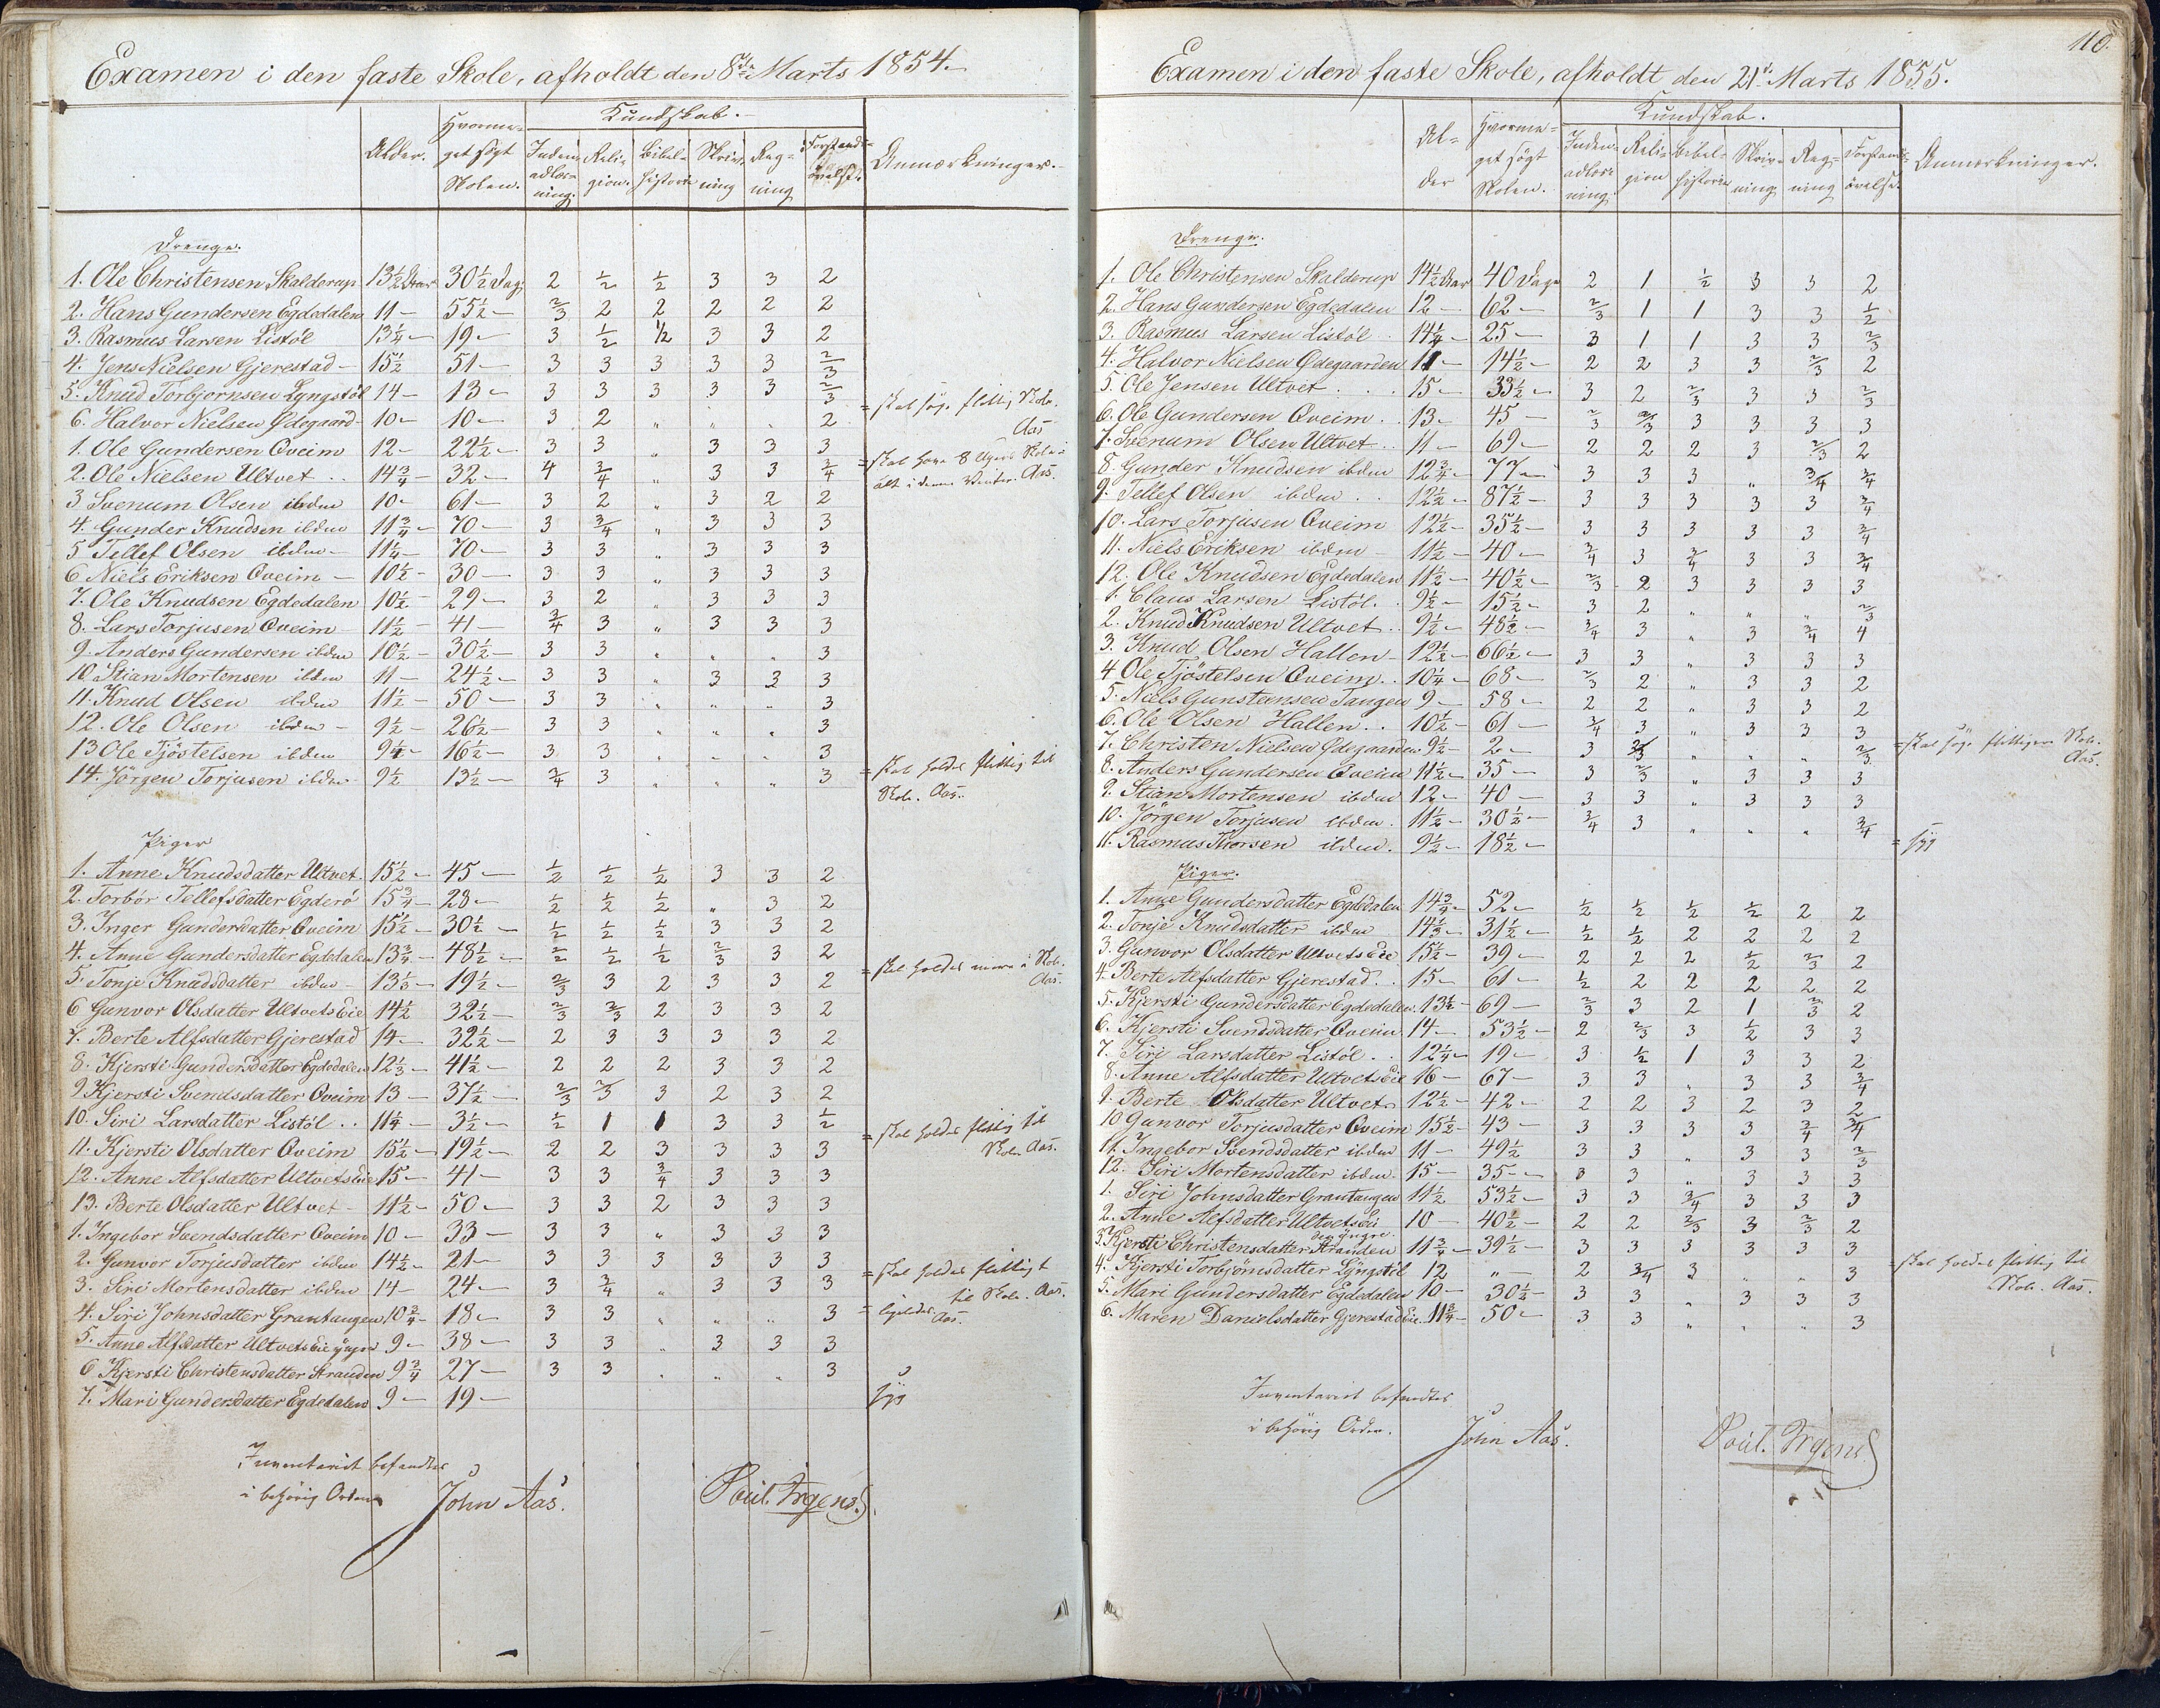 Examen i den faste Skole, afholdt den 8de Marts 1854.
Alder.
Hvorme-
get søgt
Skolen.
Kundskab.
Inden-
adlæs-
ning.
Reli-
gion.
Bibel-
historie
Skriv-
ning
Reg-
ning
Forstands-
øvelse.
Anmærkninger.
Drenge.
1. Ole Christensen Skalderup 13½ Aar 30½ Dag 2 ½ ½ 3 3 2
2. Hans Gundersen Egdedalen 11 — 55½ — 2/3 2 2 2 2 2
3. Rasmus Larsen Listöl 13¼ — 19 — 3 ½ ½ 3 3 2
4. Jens Nielsen Gjerestad — 15½ 51 — 3 3 3 3 3 2/3
5. Knud Torbjørnsen Lyngstöl 14 — 13 — 3 3 3 3 3 2/3
6. Halvor Nielsen Ødegaard — 10 — 10 — 3 2 " " . 2 = skal søge flittig Skole.
Aas
1. Ole Gundersen Oveim 12 — 22½ — 3 3 " 3 3 3
2. Ole Nielsen Ultvet . . 14¾ — 32 — 4 3/4 " 3 3 3/4 = skal have 8 Ugers Skole i
alt i denne Vinter. Aas.
3 Svenum Olsen ibdm 10 — 61 — 3 2 " 3 2 2
4. Gunder Knudsen ibdm 11¾ — 70 — 3 3/4 " 3 3 3
5 Tellef Olsen ibdm — 11¼ — 70 — 3 3 " 3 3 3
6 Niels Eriksen Oveim — 10½ — 30 — 3 3 " 3 3 3
7. Ole Knudsen Egdedalen 10½ — 29 — 3 2 " 3 3 3
8. Lars Torjusen Oveim 11½ — 41 — 3/4 3 " 3 3 3
9. Anders Gundersen ibdm 10½ — 30½ — 3 3 " " " 3
10 Stian Mortensen ibdm 11 — 24½ — 3 3 " 3 3 3
11. Knud Olsen ibdm 11½ — 50 — 3 3 " " " 3
12. Ole Olsen ibdm — 9½ — 26½ — 3 3 " " " 3
13 Ole Tjöstelsen ibdm 9¼ — 16½ — 3 3 " " " 3
14. Jörgen Torjusen ibdm — 9½ 13½ — 3/4 3 " " " 3 = skal holdes flittig til
Skole. Aas.
Piger
1. Anne Knudsdatter Ultvet. 15½ — 45 — ½ ½ ½ 3 3 2
2. Torbör Tellefsdatter Egderö 15¾ — 28 — ½ ½ ½ " 3 2
3. Inger Gundersdatter Oveim 15½ — 30½ — ½ ½ ½ 3 3 2
4. Anne Gundersdatter Egdedalen 13¾ — 48½ — ½ ½ ½ 2/3 3 2
5. Tonje Knudsdatter ibdm — 13⅓ — 19½ — 2/3 3 2 3 3 2 = skal holdes mere i Skole.
Aas.
6 Gunvor Olsdatter Ultvets Eie 14½ 32½ — 2/3 2/3 2 3 3 2
7. Berte Alfsdatter Gjerestad 14 — 32½ — 2 3 3 3 3 2
8. Kjersti Gundersdatter Egdedalen 12⅓ — 41½ — 2 2 2 3 3 2
9 Kjersti Svendsdatter Oveim 13 — 37½ — 2/3 2/3 3 2 3 2
10. Siri Larsdatter Listöl . . 11¼ — 3½ — ½ 1 1 3 3 ½ = skal holdes flittig til
Skole Aas.
11. Kjersti Olsdatter Oveim 15½ — 19½ — 2 2 3 3 3 3
12. Anne Alfsdatter Ultvets Eie 15 — 41 — 3 3 3/4 3 3 3
13. Berte Olsdatter Ultvet — 11½ — 50 — 3 3 2 3 3 3
1. Ingebor Svendsdatter Oveim 10 — 33 — 3 3 " 3 3 3
2. Gunvor Torjusdatter ibdm 14½ — 21 — 3 3 3 3 3 3
3. Siri Mortensdatter ibdm 14 — 24 — 3 3/4 " 3 3 3 = skal holdes flittigt
til Skole. Aas.
4. Siri Johnsdatter Grautangen 10¾ — 18 — 3 3 " " " 3 = ligeledes. Aas.
5. Anne Alfsdatter Ultvets Eie yngre 9 — 38 — 3 3 " 3 3 3
6 Kjersti Christensdatter Stranden 9¾ 27 — 3 3 " " " 3
7. Mari Gundersdatter Egdedalen 9 — 19 — syg
Inventariet befandtes
i behörig Orden
John Aas.
Poul. Irgens.
110.
Examen i den faste Skole, afholdt den 21de Marts 1855.
Al-
der
Hvorme-
get søgt
Skolen.
Kundskab.
Inden-
adlæs-
ning
Reli-
gion
Bibel-
historie
Skriv-
ning
Reg-
ning
Forstands-
øvelse.
Anmærkninger.
Drenge.
1. Ole Christensen Skalderup 14½ Aar 40 Dage 2 1 ½ 3 3 2
2. Hans Gundersen Egdedalen 12 — 62 — 2/3 1 1 3 3 ½
3. Rasmus Larsen Listöl . 14¼ — 25 — 3 1 1 3 3 2/3
4. Halvor Nielsen Ødegaarden 11 — 14½ — 2 2 3 3 2/3 2
5. Ole Jensen Ultvet . . . 15 — 33½ — 3 2 2/3 3 3 2/3
6. Ole Gundersen Oveim . . 13 — 45 — 2/3 2/3 3 3 3 3
7. Svenum Olsen Ultvet . . 11 — 69 — 2 2 2 3 2/3 2
8. Gunder Knudsen ibdm 12¾ — 77 — 3 3 3 " 3/4 3/4
9. Tellef Olsen ibdm . . 12½ — 87½ — 3 3 3 3 3 3/4
10. Lars Torjusen Oveim 12½ — 35½ — 3 3 3 3 3 3/4
11. Niels Eriksen ibdm — 11½ — 40 — 3/4 3 3/4 3 3 3/4
12. Ole Knudsen Egdedalen 11½ — 40½ — 2/3 2 3 3 3 3
1. Claus Larsen Listöl . . 9½ — 15½ — 3 2 " " " 2/3
2. Knud Knudsen Ultvet . . 9½ — 48½ — 3/4 3 " 3 3/4 4
3. Knud Olsen Hallen — 12½ — 66½ — 3 3 " 3 3 3
4 Ole Tjöstelsen Oveim . . 10¼ — 68 — 2/3 2 " 3 3 2
5. Niels Gunstensen Tangen 9 — 58 — 2 2 " 3 3 2
6. Ole Olsen Hallen . . 10½ — 61 — 3/4 3 " 3 3 3
7. Christen Nielsen Ødegaarden 9½ — 2 — 3 2/3 " " " 2/3 = skal søge flittigere Skole.
Aas.
8. Anders Gundersen Oveim 11½ — 35 — 3 2/3 " 3 3 3
9. Stian Mortensen ibdm 12 — 40 — 3 3 " 3 3 3
10. Jörgen Torjusen ibdm . 11½ — 30½ — 3/4 3 " " " 3/4
11. Rasmus Thorsen ibdm . 9½ — 18½ — = syg
Piger.
1. Anne Gundersdatter Egdedalen 14¾ — 52 — ½ ½ ½ ½ 2 2
2. Tonje Knudsdatter ibdm 14⅓ — 31½ — ½ ½ 2 2 2 2
3. Gunvor Olsdatter Ultvets Eie 15½ — 39 — 2 2 2 ½ 2/3 2
4. Berte Alfsdatter Gjerestad . . 15 — 61 — ½ 2 2 2 2 2
5. Kjersti Gundersdatter Egdedalen 13½ — 69 — 2/3 3 2 1 2/3 2
6. Kjersti Svendsdatter Oveim 14 — 53½ — 2 2/3 3 ½ 3 3
7. Siri Larsdatter Listöl . . 12¼ — 19 — 3 ½ 1 3 3 2
8. Anne Alfsdatter Ultvets Eie 16 — 67 — 3 3 " 3 3 3/4
9. Berte Olsdatter Ultvet 12½ — 42 — 2 2 3 2 3 2
10 Gunvor Torjusdatter Oveim 15½ — 43 — 3 3 3 3 3/4 3/4
11. Ingebor Svendsdatter ibdm 11 — 49½ 3 3 " 3 3 2/3
12. Siri Mortensdatter ibdm. 15 — 35 — 3 3 " 3 3 3
1. Siri Johnsdatter Grautangen 11½ 53½ — 3 3 3/4 3 3 3
2. Anne Alfsdatter Ultvets Eie 10 — 40½ — 2 2 2/3 3 2/3 2
den yngre.
3. Kjersti Christensdatter Stranden 11¾ — 39½ — 3 3 3 3 3 3
4. Kjersti Torbjörnsdatter Lyngstöl 12 " — 2 3/4 3 " " 3 = skal holdes flittig til
Skole. Aas.
5. Mari Gundersdatter Egdedalen 10 — 30½ — 3 3 " 3 3 3
6. Maren Danielsdatter Gjerestad Eie. 11¾ — 50 — 3 3 " " " 3
Inventariet befandtes
i behörig Orden.
John Aas.
Poul. Irgens.